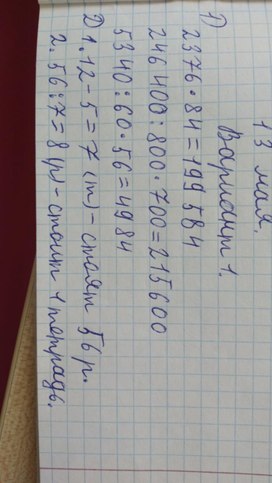 13 мая.
Вариант 1.
1)
2376 · 84 = 199 584
246 400 : 800 · 700 = 215600
5340 : 60 · 56 = 4984
2) 1. 12 - 5 = 7 (т) - стоят 56 р.
2. 56 : 7 = 8 (р - стоит 1 тетрадь.